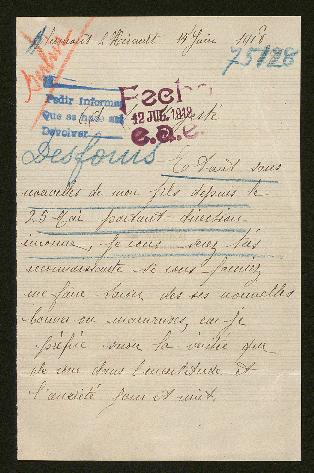 Clermont l'Hérault 15 Juin 1918
75128
Pedir Informe
Que se hace así
Devolver
Fecho
12 JUL. 1918
e.a.e.
Desfours
Etant sans
nouvelles de mon fils depuis le
25 Mai portant direction
inconnue, je vous serez très
reconnaissante si vous pouvez
me faire savoir des ses nouvelles
bonnes ou mauvaises, car je
préfère savoir la vérité que
de vivre dans l'incertitude et
l'anxiété jour et nuit,